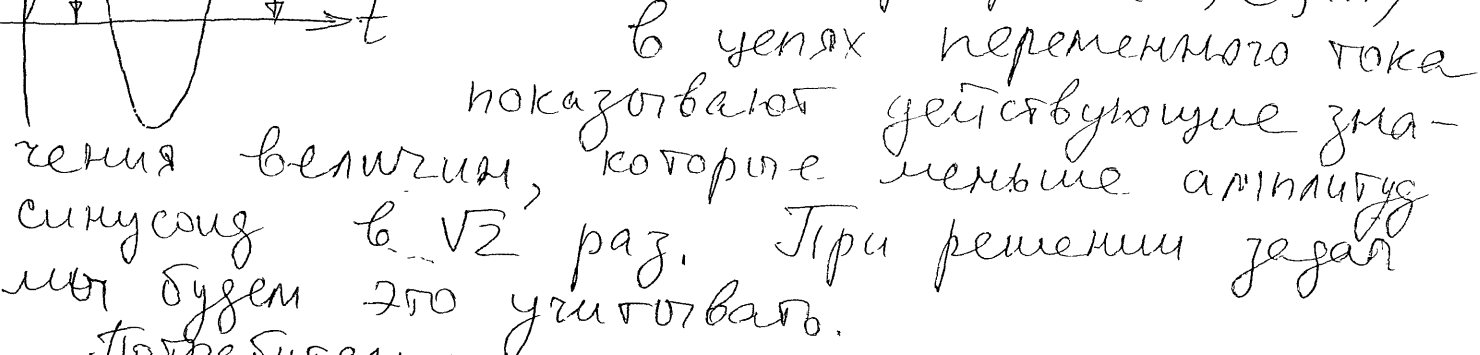 t
в цепях переменного тока
показывают действующие зна-
чения величин, которые меньше амплитуд
синусоид в √2 раз. При решении задач
мы будем это учитывать.